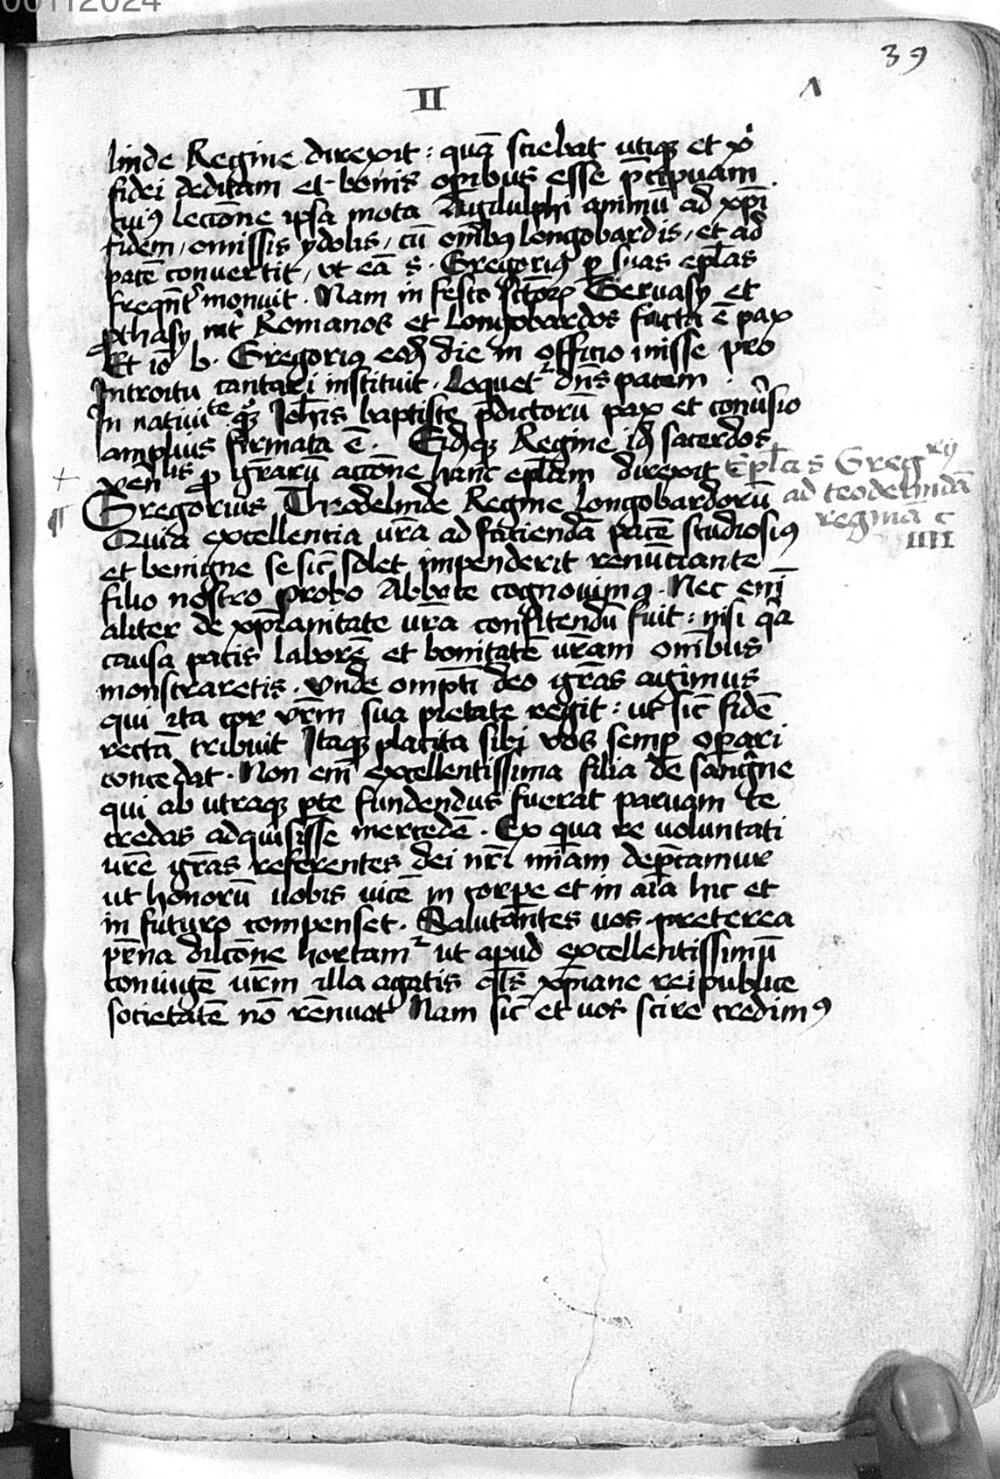 00112024
39
II
linde Regine direxit : quā sciebat utiqꝫ et xp̄i
fidei deditam et bonis opibus esse p̄cipuam .
cuiꝰ lectōne ipsa mota Augilulphi animū ad xpī
fidem / omissis ydolis / cū omībꝫ longobardis / et ad
patē convertit / ut eā s . Gregoriꝰ p suas ep̄las
freqn̄t monuit . Nam in festo sctōrꝫ Gervasy et
pthasy int̄ Romanos et Longobardos facta ē pax
Et iō b . Gregoriꝰ eodꝫ die in officio misse pro
Introitu cantari instituit . Loquet dn̄s pacem .
In natiuite qꝫ Joh̄is baptiste p̄dictorū pax et conv̄sio
amplius firmata ē . Eidēqꝫ Regine idꝫ sacerdos
venlis p grarū actōne hanc ep̄lam direxit
Ep̄la s Gregrij
ad teodelindā
reginā c
IIII
Gregorius Theodelinde Regine Longobardorū
Quia excellentia ur̄a ad faciendā pacē studiosiꝰ
et benigne se sic̄ solet impenderit renūciante
filio nostro probo Abbate cognouimꝰ . Nec eni
aliter de xp̄ianitate ur̄a confitendū fuit : nisi qa
causa pacis laborē et bonitatē ur̄am omībus
monstraretis . Unde omp̄ti deo gr̄as agimus
qui ita cor vr̄m sua pietate regit : ut sic̄ fidē
rectā tribuit Itaqꝫ placita sibi vos semp operari
concedat . Non em̄ excellentissima filia de sanguine
qui ab utraqꝫ pte fundendus fuerat paruam te
credas adquisisse mercedē . Ex qua re uoluntati
ur̄e gr̄as referentes dei nr̄i mīam dep̄camur
ut honorū uobis uicē in corpe et in aīa hic et
in futuro compenset . Salutantes uos preterea
pr̄na dilcōne hortam ut apud excellentissimū
coniugē ur̄m illa agatis qt̄s xp̄iane reipublice
societatē nō rēnuat Nam sic̄ et uos scire credimꝰ